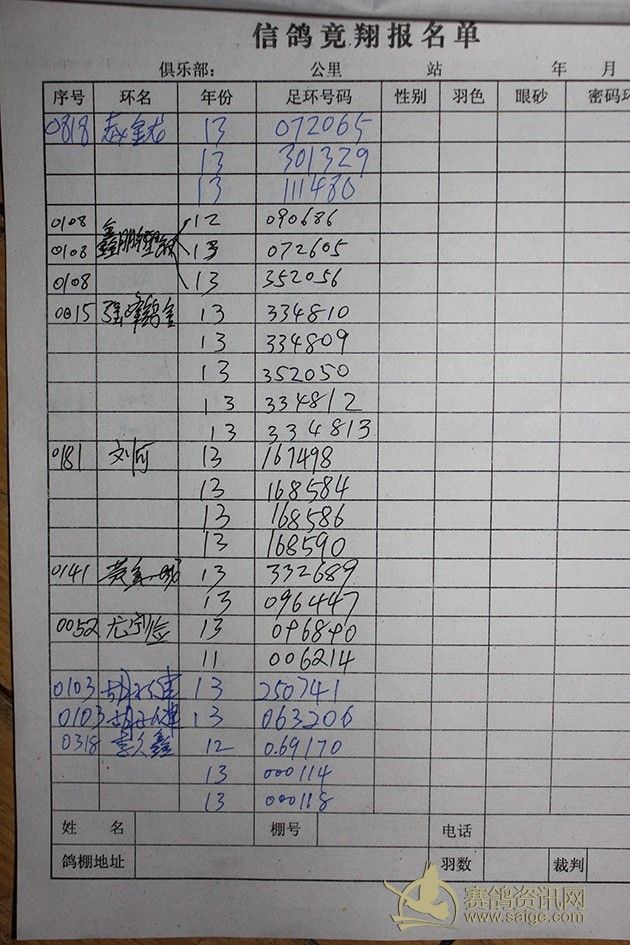 信鸽竞翔报名单
俱乐部： 公里 站 年 月
序号 环名 年份 足环号码 性别 羽色 眼砂 密码环
0818 13 072065
13 301329
13 111480
0108 12 090686
0108 13 072605
0108 13 352056
0015 13 334810
13 334809
13 352050
13 334812
13 334813
0181 刘 13 167498
13 168584
13 168586
13 168590
0141 13 332689
13 096447
0052 13 096840
11 006214
0103 13 250741
0103 13 063206
0318 李久鑫 12 0.69170
13 000114
13 000118
姓 名 棚号 电话
鸽棚地址 羽数 裁判
赛鸽资讯网
www.saige.com